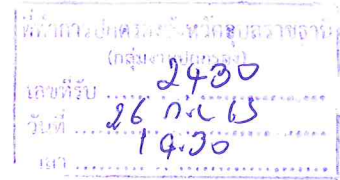 ที่ทำการปกครองจังหวัดอุบลราชธานี
(กลุ่มงานปกครอง)
เลขที่รับ 2430
วันที่ 26 ก.ย 65
เวลา 19.30